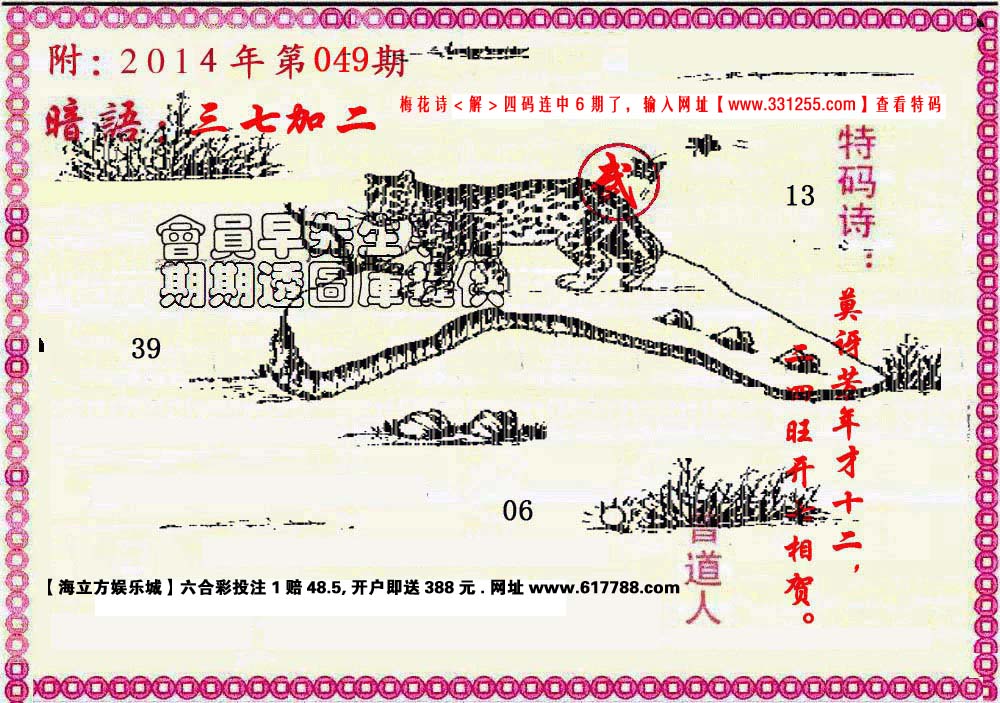 附：2014年第049期
暗語：三七加二
梅花诗<解>四码连中6期了，输入网址【www.331255.com】查看特码
特码诗：
13
會員早先生
期期透圖庫提供
莫讶芳年才十二，
二四旺开七相贺。
39
06
曾道人
【海立方娱乐城】六合彩投注1赔48.5,开户即送388元.网址www.617788.com